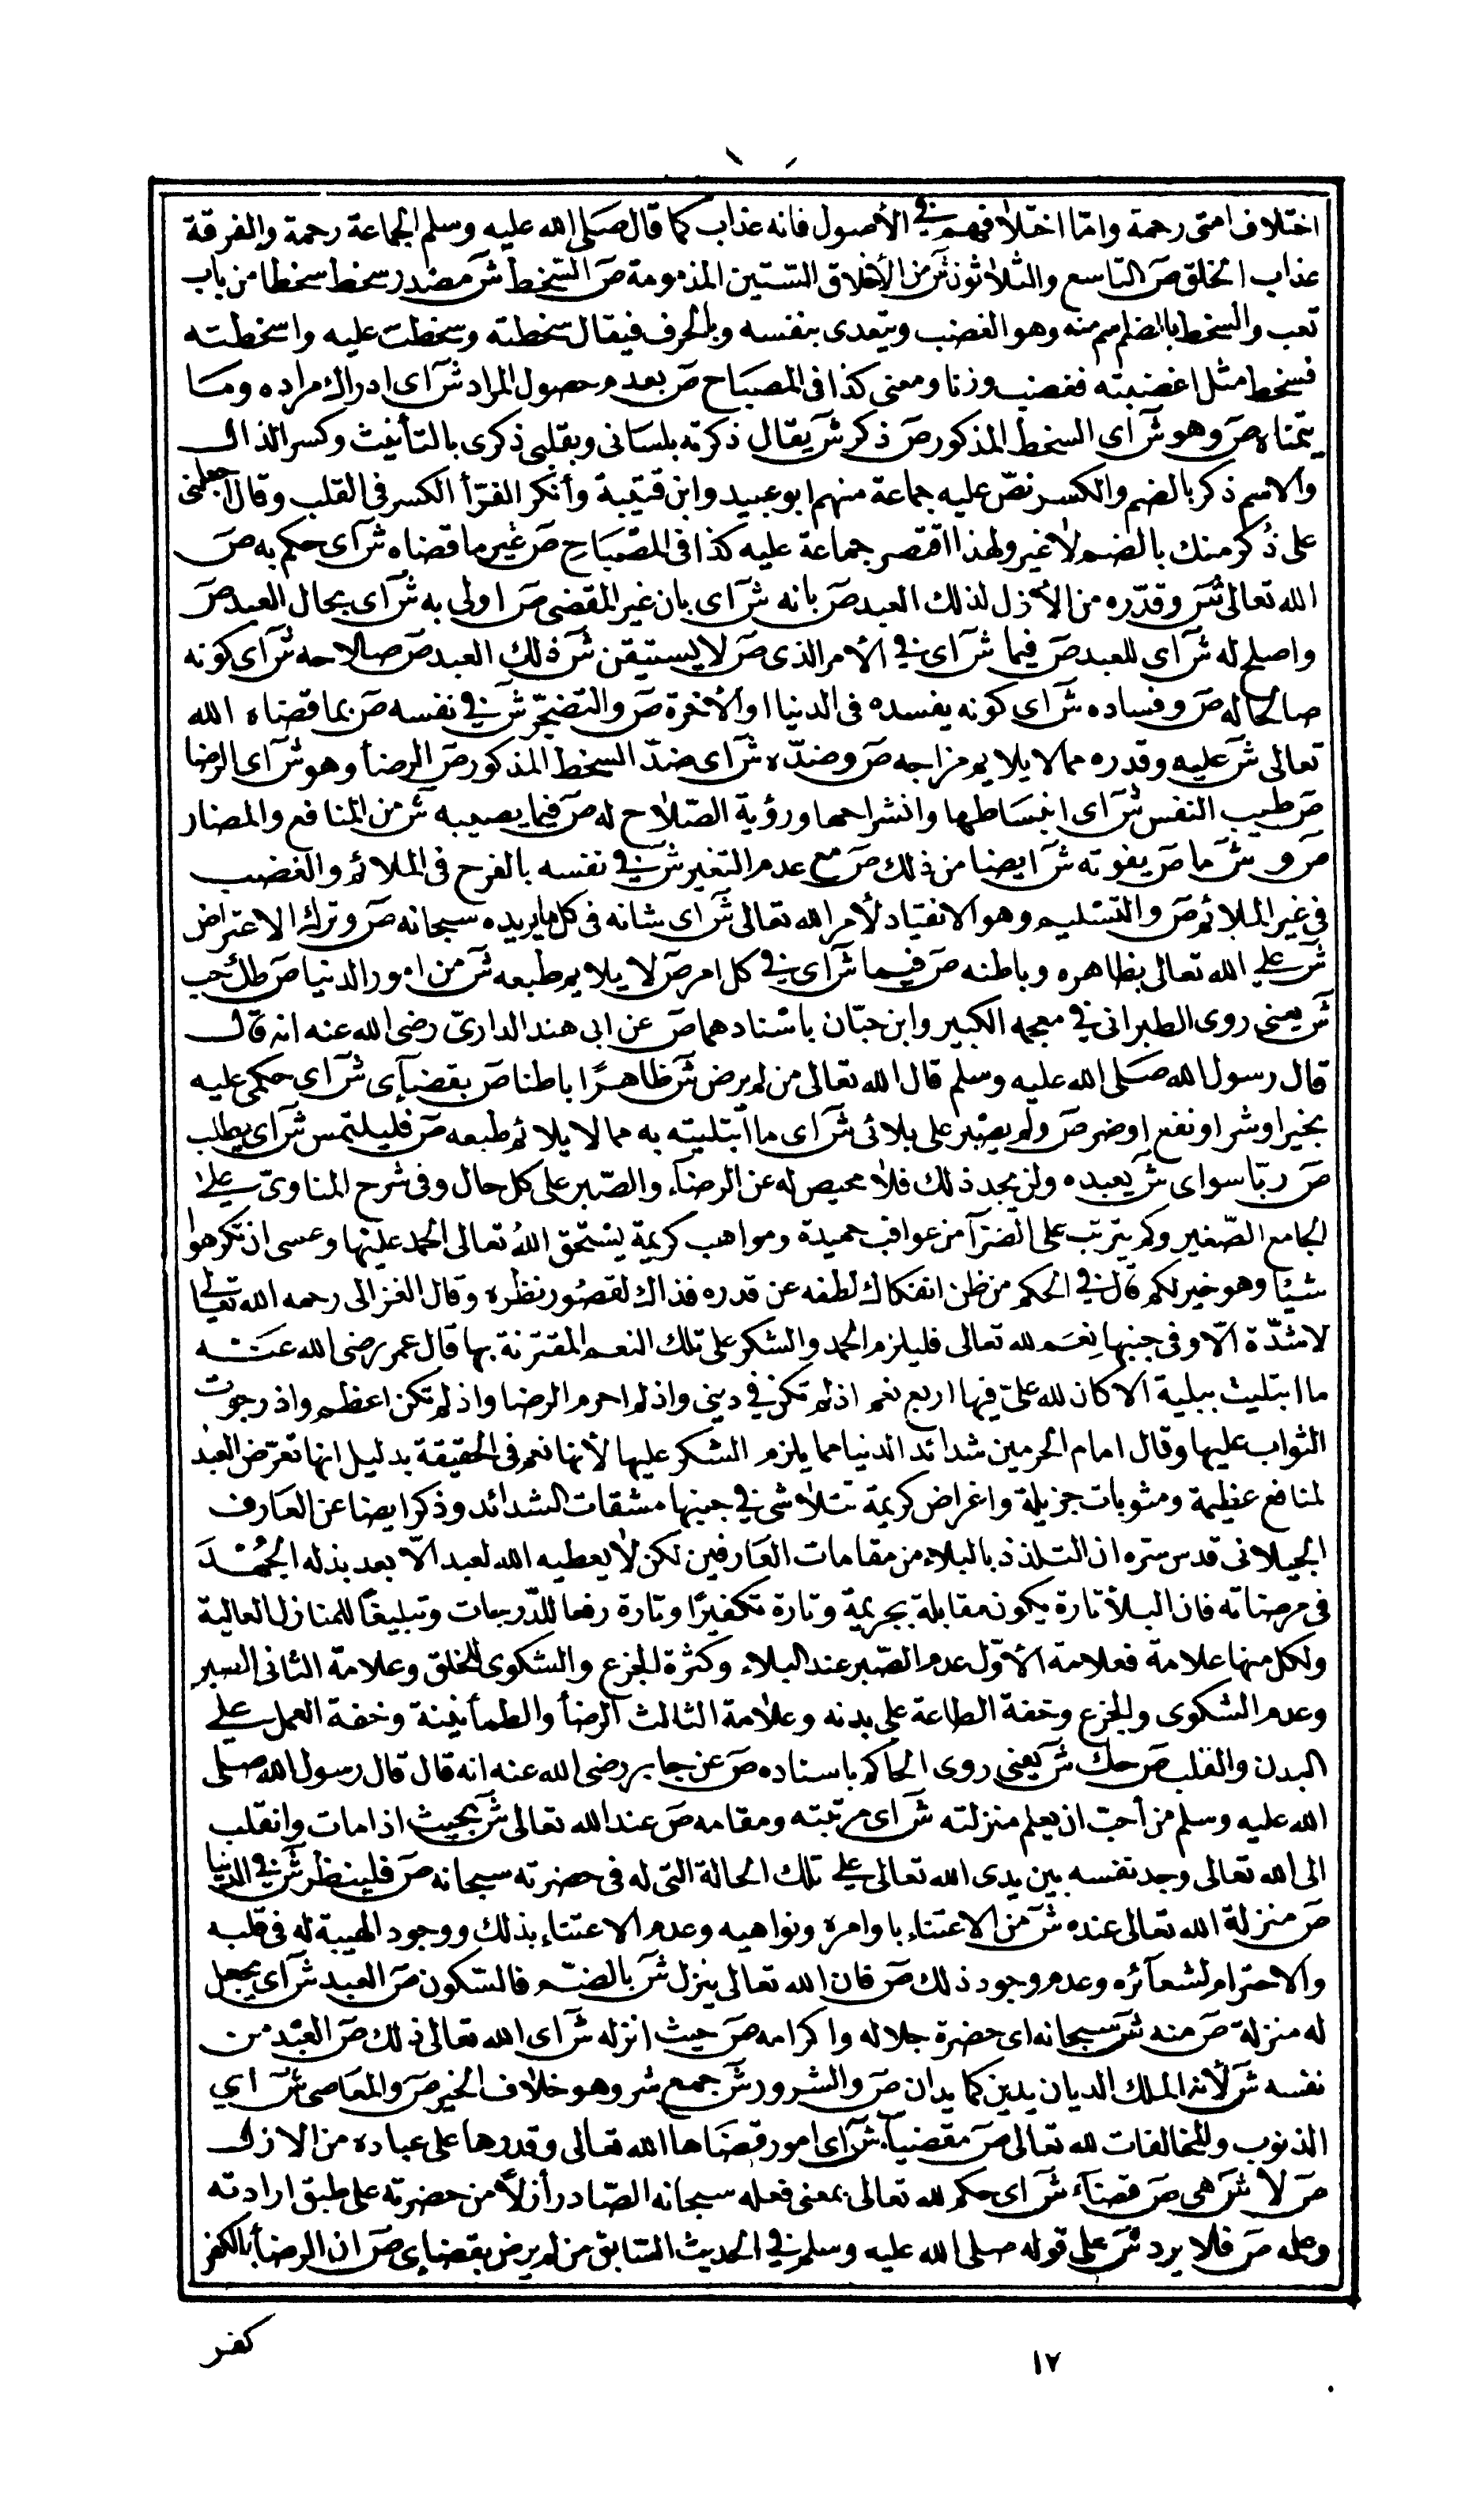 اختلاف امتى رحمة وامّا اختلافهم فى الأصول فانه عذاب كما قال صلى الله عليه وسلم الجماعة رحمة والفرقة
عذاب الخلق ص التاسع والثلاثون ش من الأخلاق الستين المذمومة ص السّخط ش مصدر سخط سخطا من باب
تعب والسخط بالضم اسم منه وهو الغضب ويتعدى بنفسه وبالحرف فيقال سخطته وسخطت عليه واسخطته
فسخط مثل اغضبته فغضب وزنا ومعنى كذا فى المصباح ص بعدم حصول المراد ش اى ادراك مراده وما
يتمناه ص وهو ش اى السخط المذكور ص ذكر ش يقال ذكرته بلسانى وبقلبى ذكرى بالتأنيث وكسر الذال
والاسم ذكر بالضم والكسر نصّ عليه جماعة منهم ابو عبيد وابن قتيبة وأنكر الفرّأ الكسر فى القلب وقال اجعلنى
على ذُكر منك بالضم لا غير ولهذا اقتصر جماعة عليه كذا فى المصباح ص غير ما قضاه ش اى حكم به ص
الله تعالى ش وقدّره من الأزل لذلك العبد ص بانه ش اى بان غير المقضى ص اولى به ش اى بحال العبد ص
واصلح له ش اى للعبد ص فيما ش اى فى الأمر الذى ص لا يستيقن ش ذلك العبد ص صلاحه ش اى كونه
صالحا له ص وفساده ش اى كونه يفسده فى الدنيا او الأخرة ص والتضجّر ش فى نفسه ص بما قضاه الله
تعالى ش عليه وقدره مما لا يلايم مزاجه ص وضدّه ش اى ضدّ السخط المذكور ص الرضأ وهو ش اى الرضا
ص طيب النفس ش اى انبساطها وانشراحها ورؤية الصّلاح له ص فيما يصيبه ش من المنافع والمضار
ص و ش ما ص يفوته ش ايضا من ذلك ص مع عدم التغير ش فى نفسه بالفرح فى الملائم والغضب
فى غير الملائم ص والتسليم وهو الانقياد لأمر الله تعالى ش اى شانه فى كل ما يريده سبحانه ص وترك الاعتراض
ش على الله تعالى بظاهره وباطنه ص فيما ش اى فى كل امر ص لا يلايم طبعه ش من امور الدنيا ص طك حب
ش يعنى روى الطبرانى فى معجمه الكبير وابن حبّان باسنادهما ص عن ابى هند الدارىّ رضى الله عنه انه قال
قال رسول الله صلى الله عليه وسلم قال الله تعالى من لم يرض ش ظاهرًا باطنا ص بقضآى ش اى حكمى عليه
بخير او شر او نفع او ضر ص ولم يصبر على بلائى ش اى ما ابتليته به مما لا يلائم طبعه ص فليلتمس ش اى يطلب
ص ربّا سواى ش يعبده ولن يجد ذلك فلا محيص له عن الرضآء والصّبر على كل حال وفى شرح المناوىّ على
الجامع الصّغير وكم يترتب على الضرّآ من عواقب حميدة ومواهب كريمة يستحق اللهُ تعالى الحمد عليها وعسى ان تكرهوا
شيئا وهو خير لكم قال فى الحكم من ظن انفكاك لطفه عن قدره فذاك لقصُور نظره وقال الغزالى رحمه الله تعالى
لا شدّة الّا وفى جنبها نِعَم لله تعالى فليلزم الحمد والشكر على تلك النعم المقترنة بها قال عمر رضى الله عنه
ما ابتليت ببلية الا كان لله علىّ فيها اربع نعم اذ لم تكن فى دينى واذ لم احرم الرضا واذ لم تكن اعظم واذ رجوت
الثواب عليها وقال امام الحرمين شدائد الدنيا مما يلزم الشكر عليها لأنها نعم فى الحقيقة بدليل انها تعرّض العبد
لمنافع عظيمة ومثوبات جزيلة واغراض كريمة تتلاشى فى جنبها مشقات الشدائد وذكر ايضا عن العارف
الجيلانى قدس سرّه ان التلذذ بالبلاء من مقامات العارفين لكن لا يعطيه الله لعبد الّا بعد بذله الجُهْدَ
فى مرضاته فان البلأ تارة يكون مقابلة بجريمة وتارة تكفيرًا وتارة رفعا للدّرجات وتبليغًا للمنازل العالية
ولكل منها علامة فعلامة الأوّل عدم الصّبر عند البلاء وكثرة الجزع والشكوى للخلق وعلامة الثانى الصبر
وعدم الشكوى والجزع وخفة الطاعة على بدنه وعلامة الثالث الرضأ والطمأنينة وخفة العمل على
البدن والقلب ص حك ش يعنى روى الحاكم باسناده ص عن جابر رضى الله عنه انه قال قال رسول الله صلى
الله عليه وسلم من أحبّ ان يعلم منزلته ش اى مرتبته ومقامه ص عند الله تعالى ش بحيث اذا مات وانقلب
الى الله تعالى وجد نفسه بين يدى الله تعالى على تلك الحالة التى له فى حضرته سبحانه ص فلينظر ش فى الدنيا
ص منزلة الله تعالى عنده ش من الاعتناء باوامره ونواهيه وعدم الاعتناء بذلك ووجود الهيبة له فى قلبه
والاحترام لشعآئره وعدم وجود ذلك ص فان الله تعالى ينزل ش بالضمّ فالسّكون ص العبد ش اى يجعل
له منزلة ص منه ش سبحانه اى حضرة جلاله واكرامه ص حيث انزله ش اى الله تعالى ذلك ص العبْد من
نفسه ش لأنه الملك الديان يدين كما يدان ص والشرور ش جمع شر وهو خلاف الخير ص والمعاصى ش اي
الذنوب والمخالفات لله تعالى ص مقضيات ش اى امور قضاها الله تعالى وقدرها على عباده من الازل
ص لا ش هى ص قضآء ش اى حكم لله تعالى بمعنى فعله سبحانه الصّادر أزلاً من حضرته على طبق ارادته
وعلمه ص فلا يرد ش على قوله صلى الله عليه وسلم فى الحديث السّابق من لم يرض بقضاءى ص ان الرضأ بالكفر
كفر
١٧